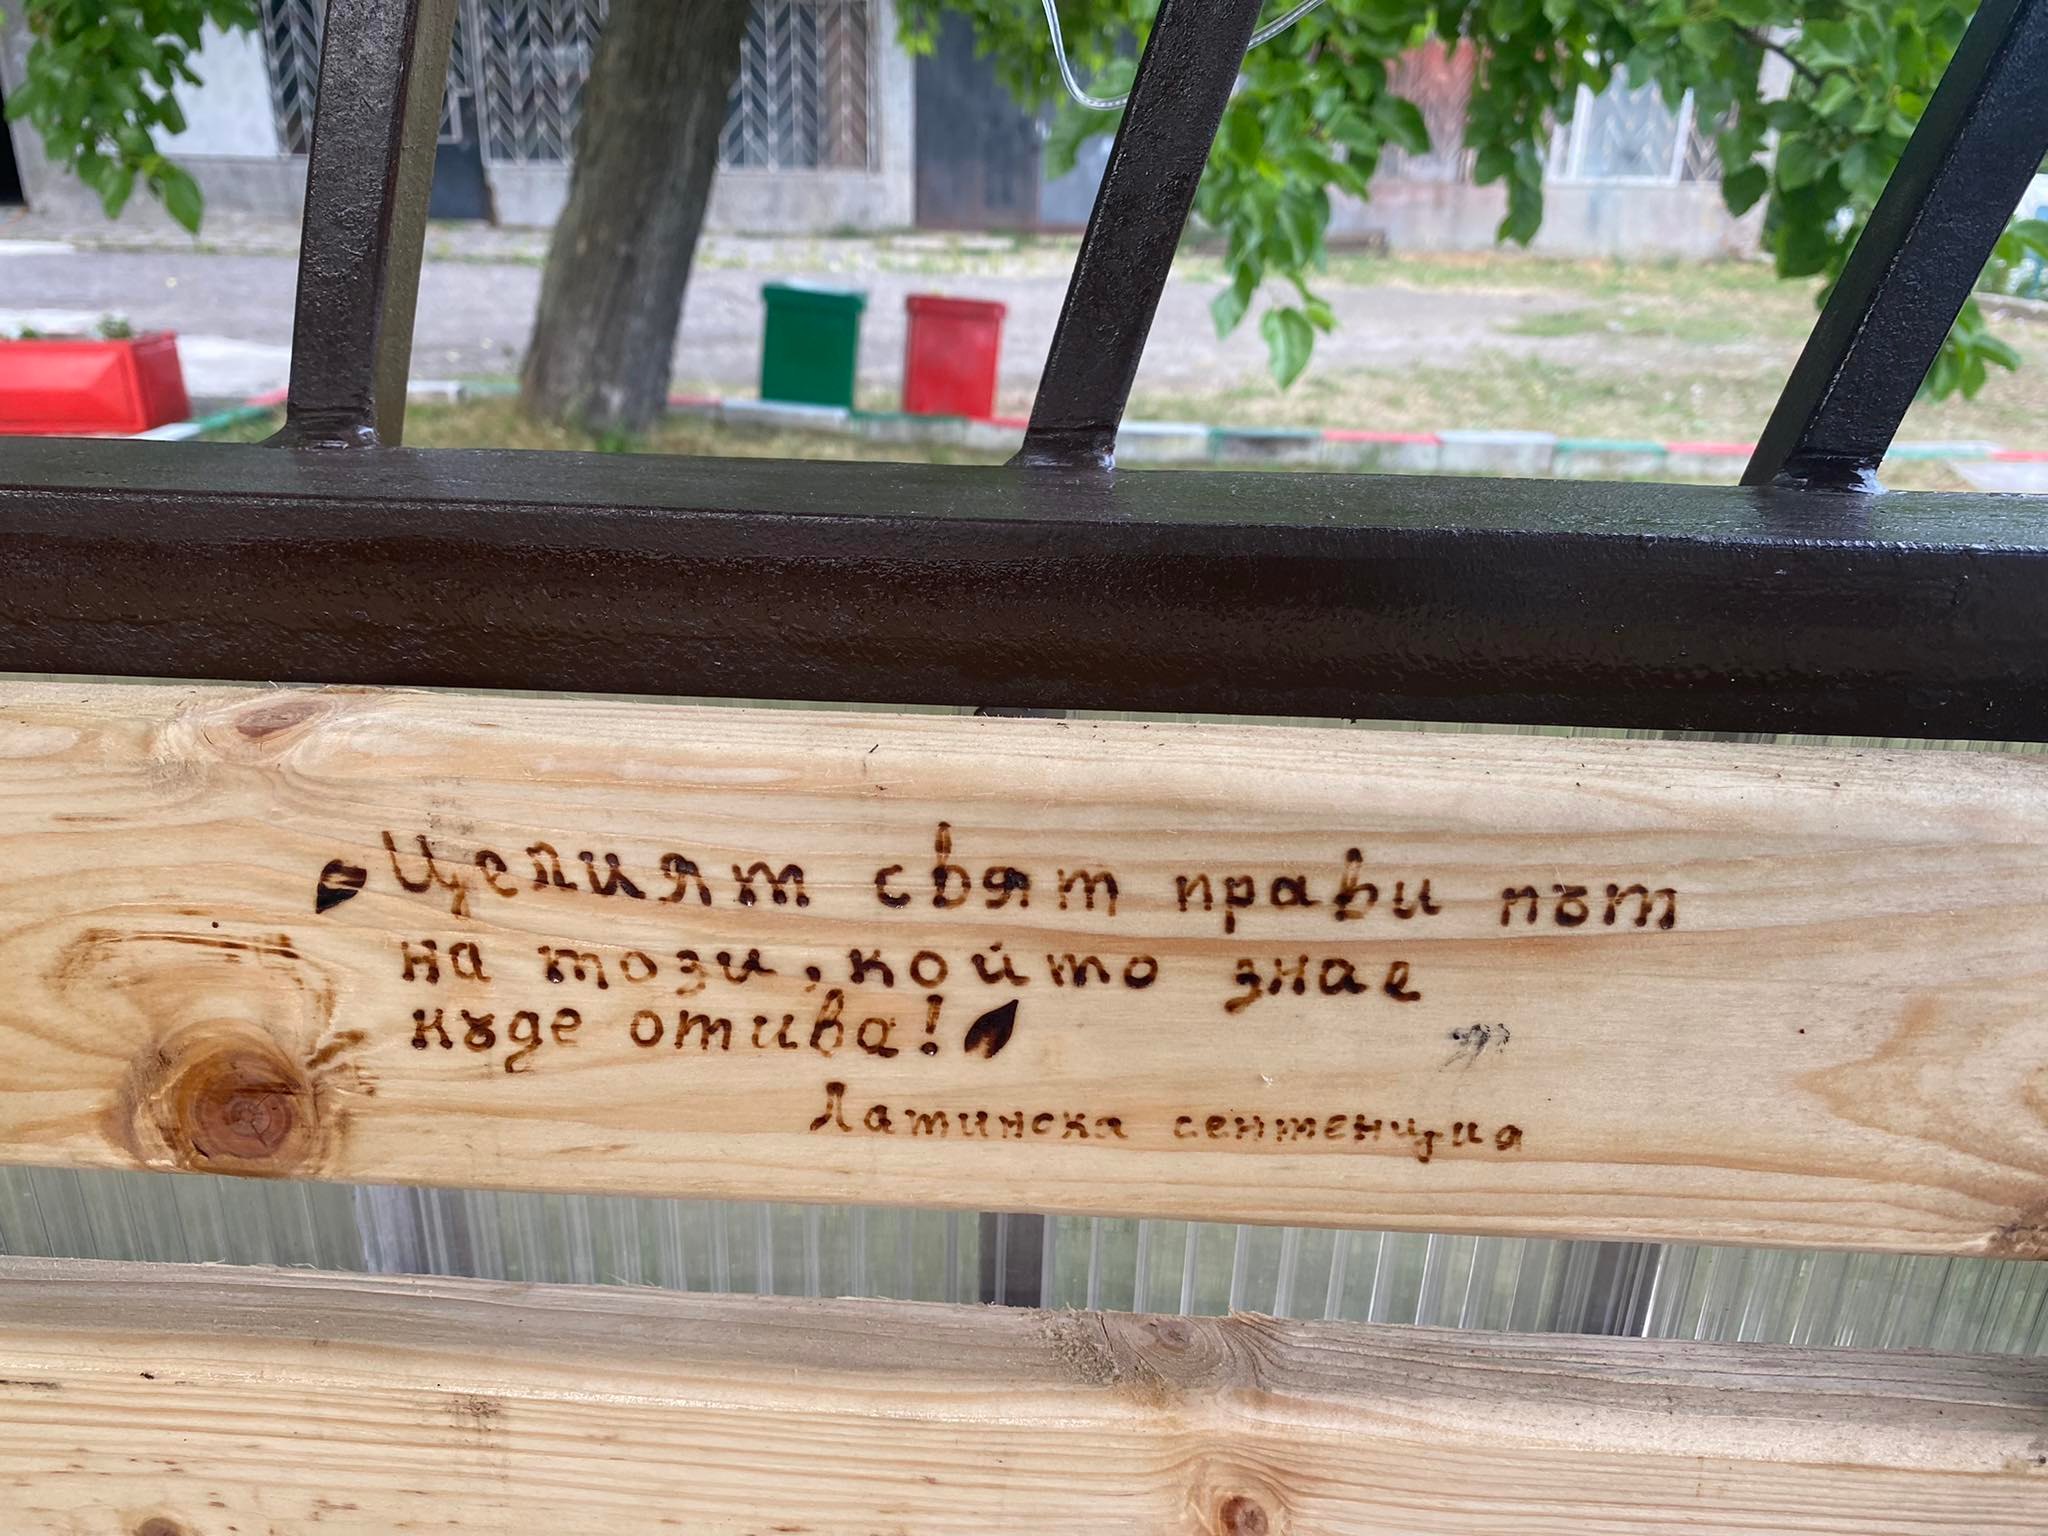 Целият свят прави път
на този, който знае
къде отива!
Латинска сентенция